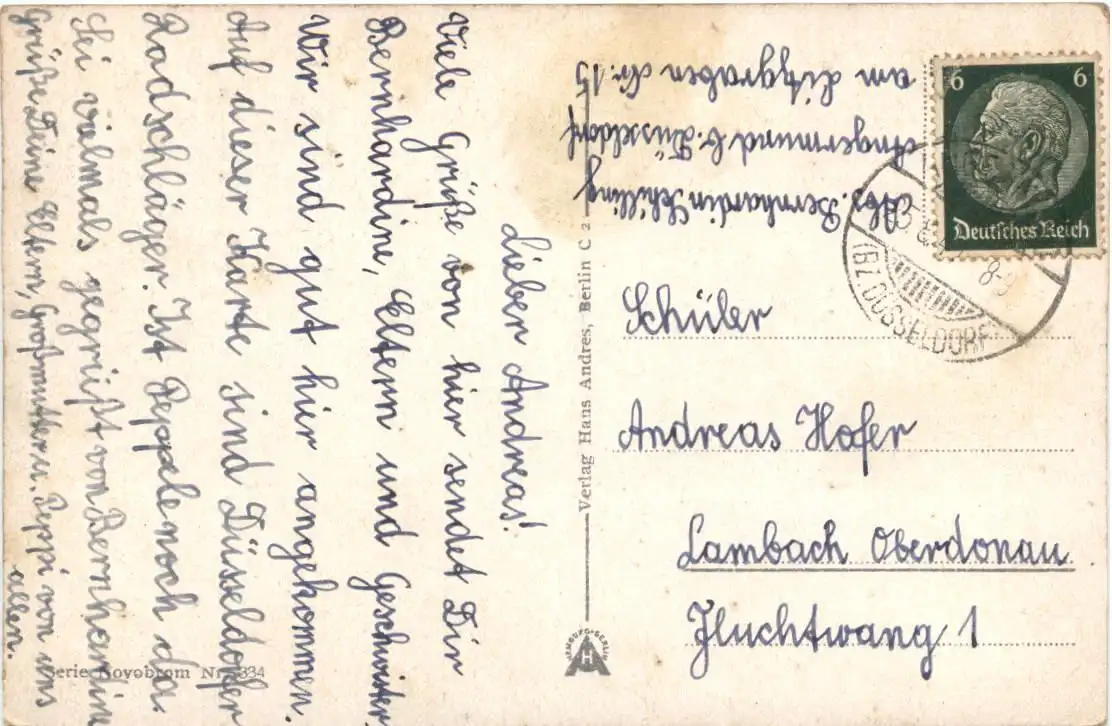 Lieber Andreas!
Viele Grüße von hier sendet Dir
Bernhardine, Eltern und Geschwister.
Wir sind gut hier angekommen.
Auf dieser Karte sind Düsseldorfer
Radschläger. Ist Peppele noch da.
Sei vielmals gegrüßt von Bernhardine
Grüße Deine Eltern, Großmutter u. Peppi von uns
allen.
Serie Novobrom Nr. 334
Verlag Hans Andres, Berlin C 2
HAMBURG-BERLIN
Abs. Bernhardin Schilling
Angermund b. Düsseldorf
am Litzgraben Nr. 15
6 6
Deutsches Reich
DÜSSELDORF
Schüler
Andreas Hofer
Lambach Oberdonau
Fluchtwang 1